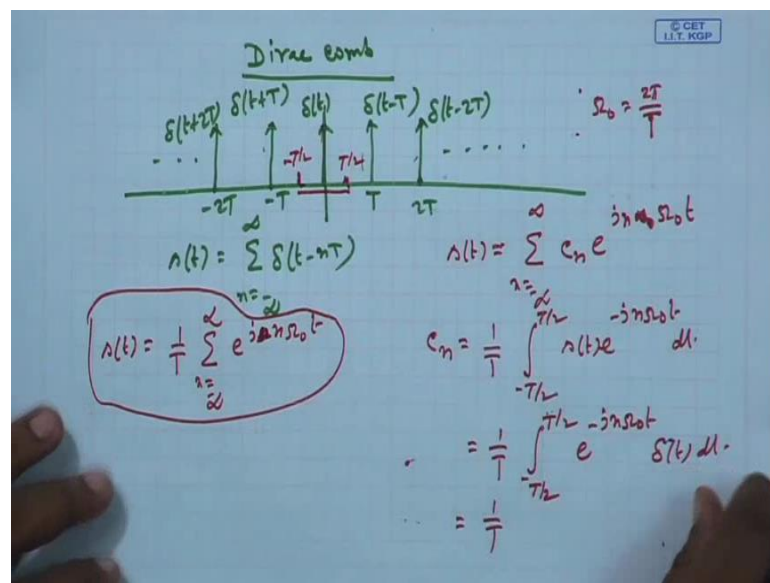 © CET
I.I.T. KGP
Dirac comb
δ(t+2T) δ(t+T) δ(t) δ(t-T) δ(t-2T)
Ω₀ = 2π/T
... -T/2 T/2 .....
-2T -T T 2T
s(t) = ∑_{n=-∞}^{∞} δ(t-nT)
s(t) = ∑_{n=-∞}^{∞} c_n e^{jnΩ₀t}
s(t) = 1/T ∑_{n=-∞}^{∞} e^{jnΩ₀t}
c_n = 1/T ∫_{-T/2}^{T/2} s(t) e^{-jnΩ₀t} dt.
= 1/T ∫_{-T/2}^{T/2} e^{-jnΩ₀t} δ(t) dt.
= 1/T